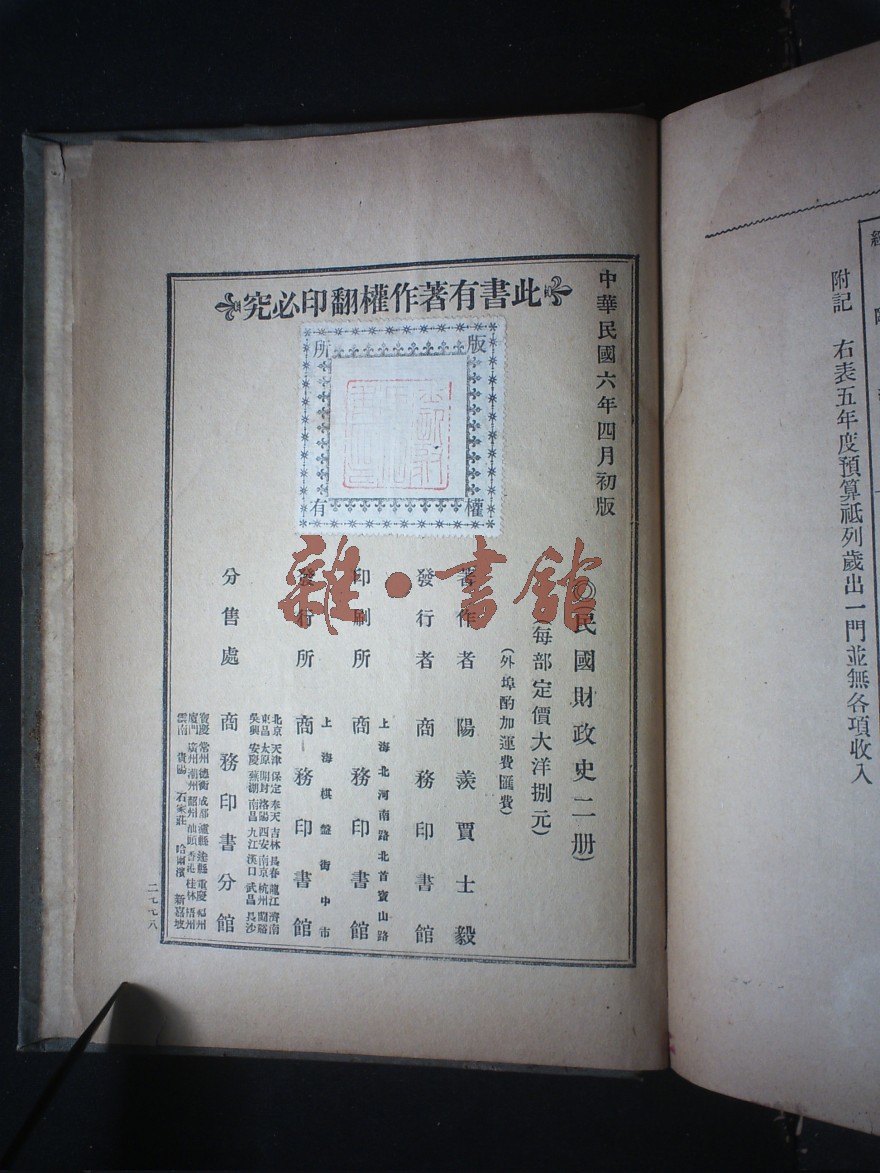 附記　右表五年度預算祗列歲出一門並無各項收入
此書有著作權翻印必究
版權所有
中華民國六年四月初版
◎民國財政史二册）
（每部定價大洋捌元）
（外埠酌加運費匯費）
著作者　陽羨賈士毅
發行者　商務印書館
上海北河南路北首寶山路
印刷所　商務印書館
上海棋盤街中市
發行所　商務印書館
北京 天津 保定 奉天 吉林 長春 龍江 濟南
東昌 太原 開封 洛陽 西安 南京 杭州
吳興 安慶 蕪湖 南昌 九江 漢口 武昌 長沙
分售處　商務印書分館
寶慶 常州 德衡 成都 瀘縣 達縣 重慶 福州
廈門 廣州 潮州 韶州 汕頭 香港 桂林 梧州
雲南 貴陽 石家莊 哈爾濱 新嘉坡
二七七八
雜·書舘